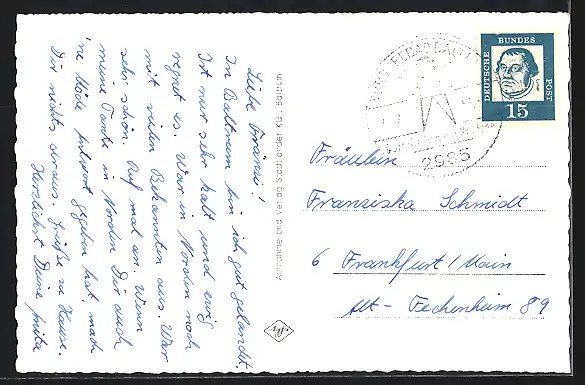 Liebe Fränzi!
In Baltrum bin ich gut gelandet.
Ist nur sehr kalt und ewig
regnet es. War in Norden noch
mit vielen Bekannten aus. War
sehr schön. Ruf mal an. Wenn
meine Tante in Norden Dir auch
'ne blöde Antwort gegeben hat, mach
Dir nichts daraus. Grüße zu Hause.
Herzlichst Deine
Aufnahme und Verlag Stadtlander KG., Baltrum
Agfa
DEUTSCHE
BUNDES
POST
15
2985
Fräulein
Franziska Schmidt
6 Frankfurt/Main
Alt-Fechenheim 89